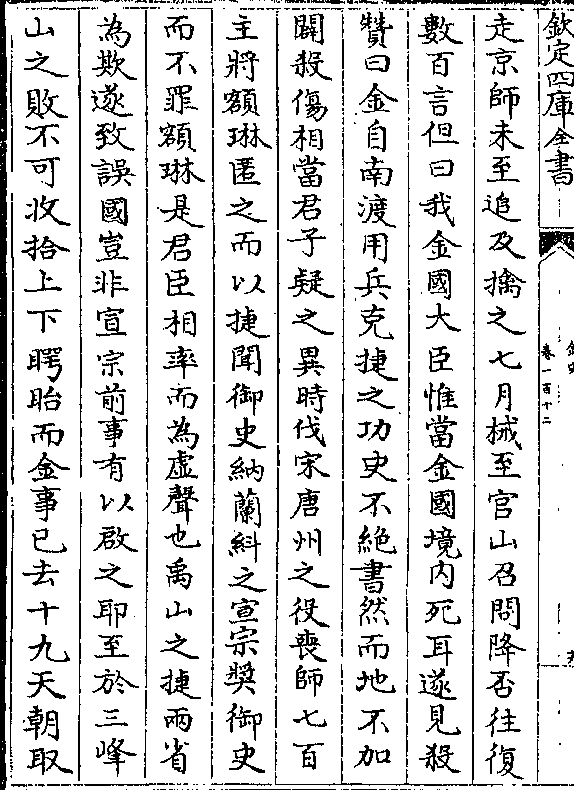 欽定四庫全書
金史
卷一百十二
走京師未至追及擒之七月械至官山召問降否往復
數百言但曰我金國大臣惟當金國境内死耳遂見殺
贊曰金自南渡用兵克捷之功史不絶書然而地不加
闢殺傷相當君子疑之異時伐宋唐州之役喪師七百
主將額琳匿之而以捷聞御史納蘭糾之宣宗奬御史
而不罪額琳是君臣相率而為虚聲也禹山之捷兩省
為欺遂致誤國豈非宣宗前事有以啟之耶至於三峰
山之敗不可收拾上下𥈭眙而金事已去十九天朝取